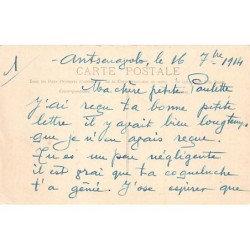 1
le 16 7bre 1914
CARTE POSTALE
Ma chère petite Paulette
J'ai reçu ta bonne petite
lettre il y avait bien longtemps
que je n'en avais reçue.
Tu es un peu négligente
il est vrai que ta coqueluche
t'a gênée. J'ose espérer que